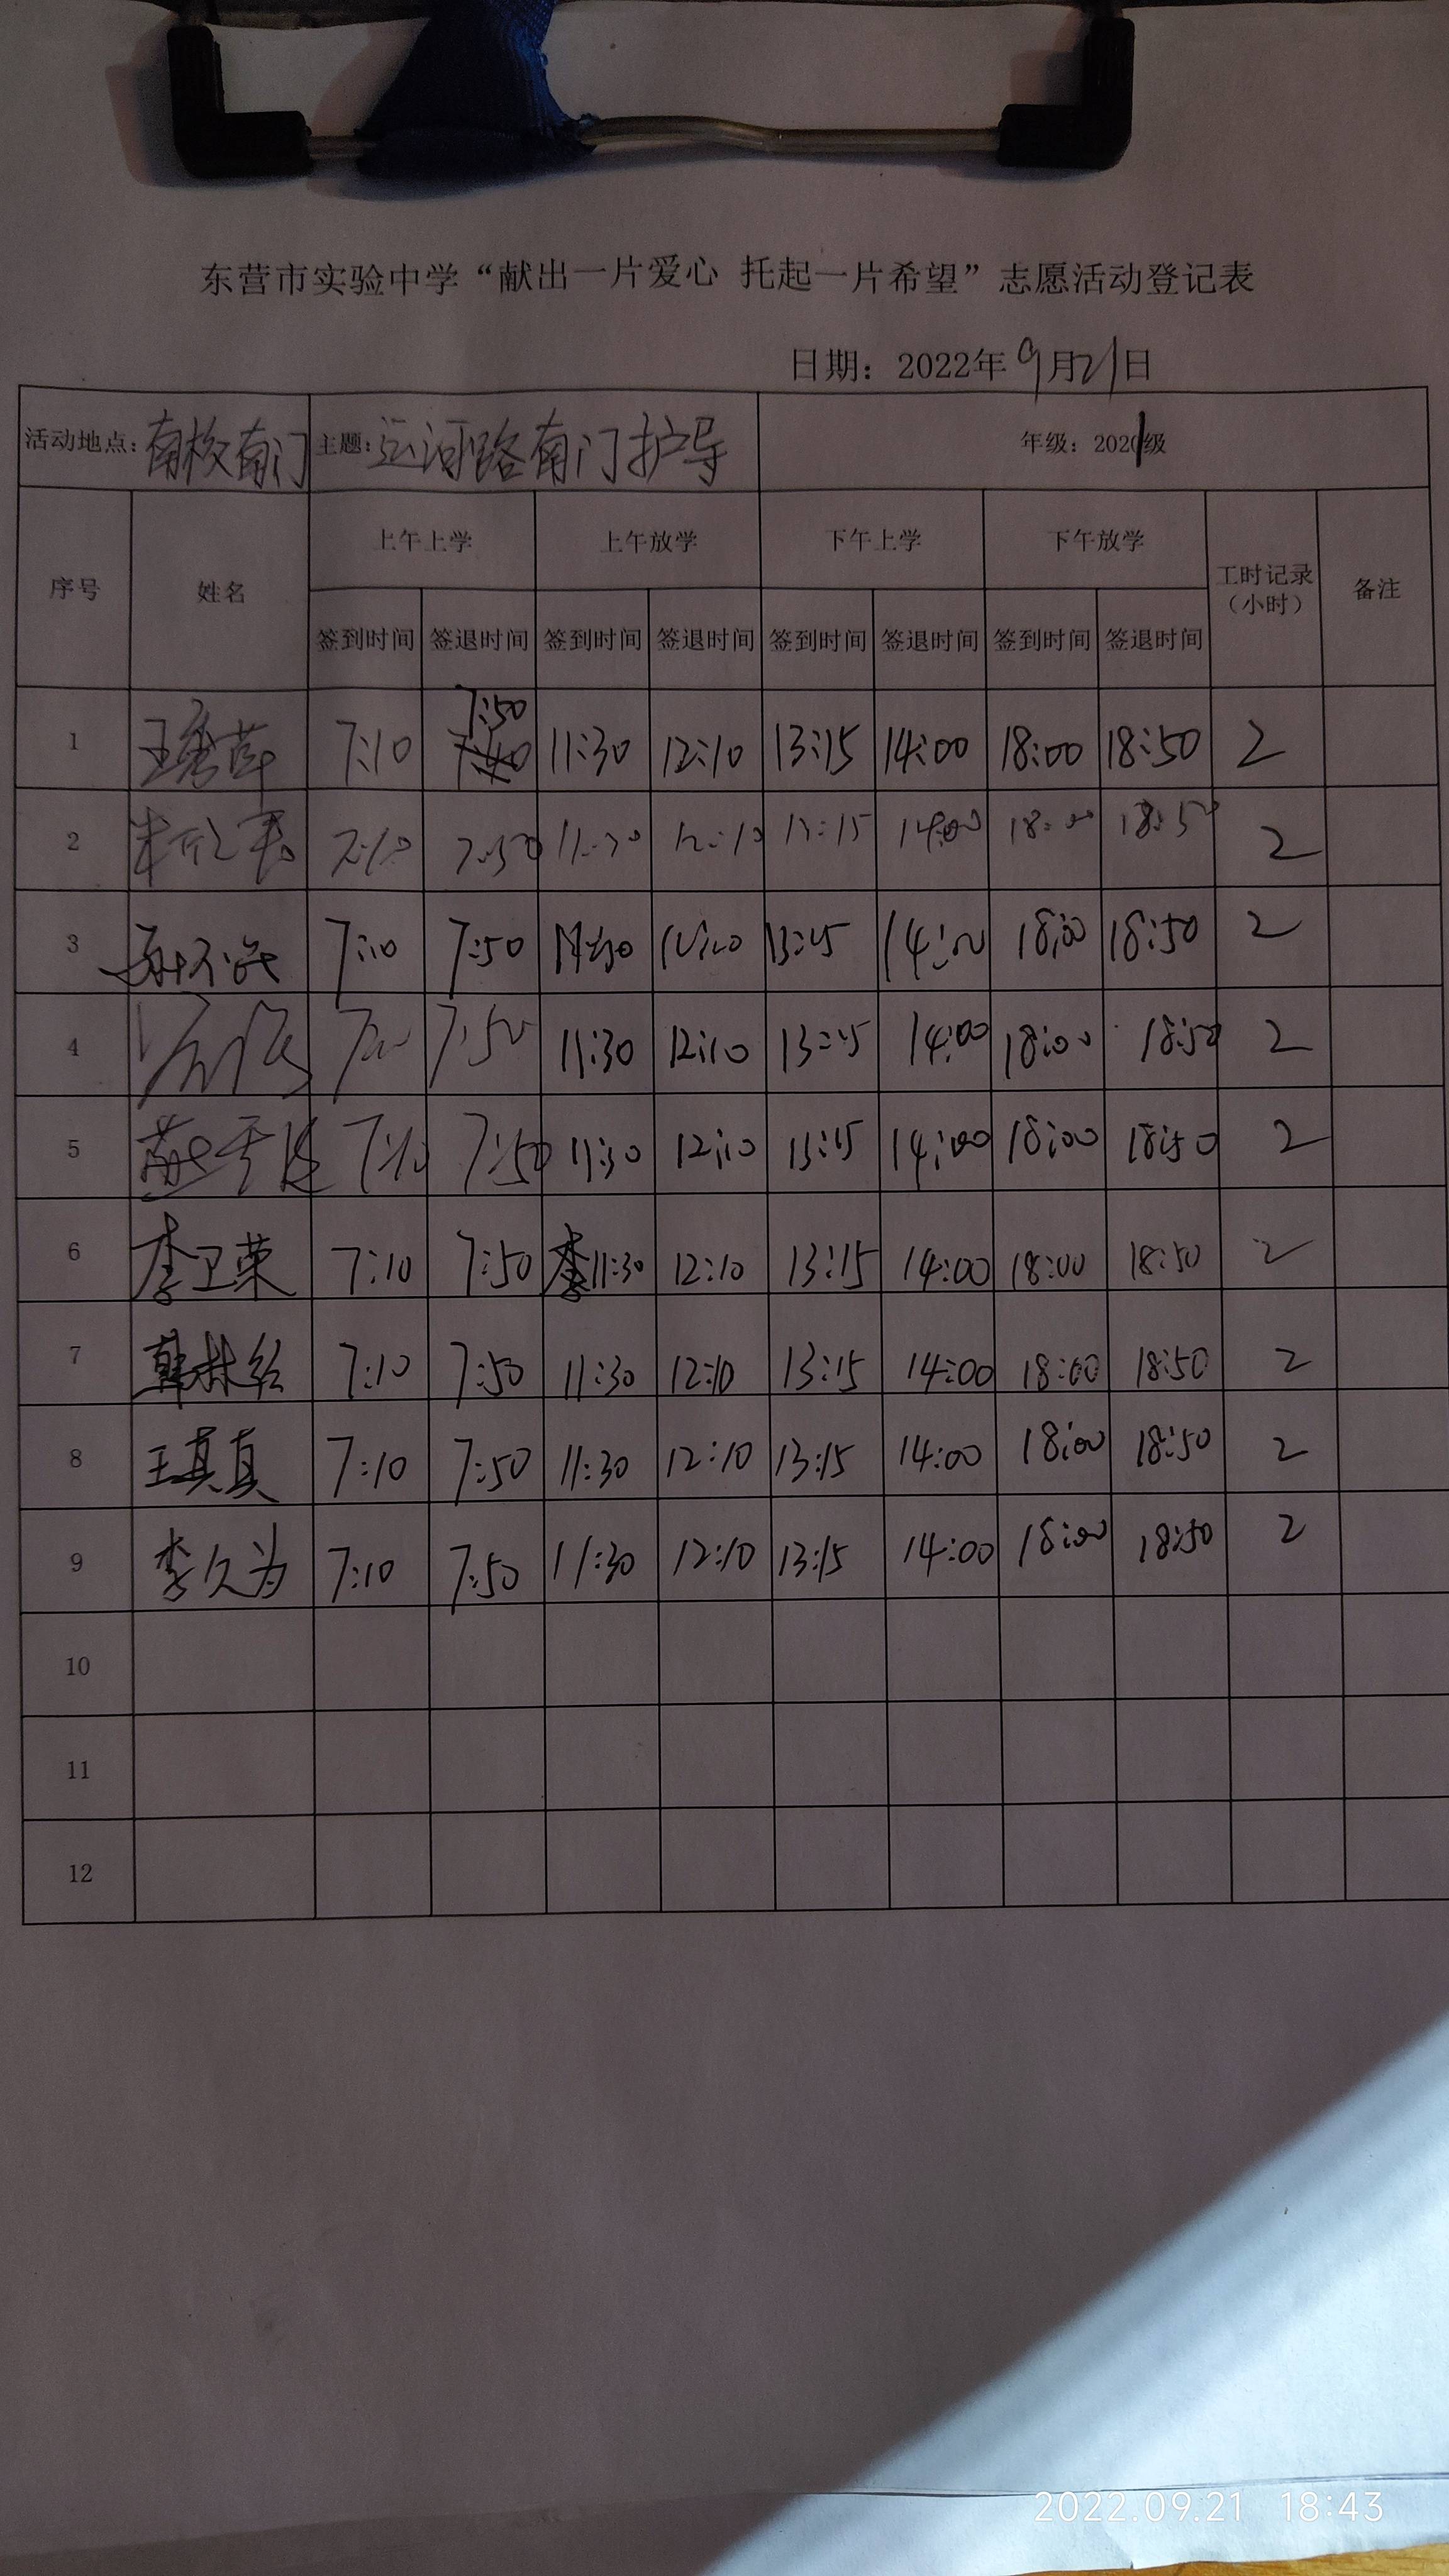 东营市实验中学“献出一片爱心 托起一片希望”志愿活动登记表
日期：2022年9月21日
活动地点：南校南门 主题：运河路南门护导 年级：2021级
序号 姓名 上午上学 上午放学 下午上学 下午放学 工时记录（小时） 备注
签到时间 签退时间 签到时间 签退时间 签到时间 签退时间 签到时间 签退时间
7:50
1 王秀萍 7:10 7:40 11:30 12:10 13:15 14:00 18:00 18:50 2
2 7:10 7:50 11:30 12:10 13:15 14:00 18:00 18:50 2
3 7:10 7:50 11:30 12:10 13:15 14:00 18:00 18:50 2
4 7:10 7:50 11:30 12:10 13:15 14:00 18:00 18:50 2
5 7:10 7:50 11:30 12:10 13:15 14:00 18:00 18:50 2
6 李卫荣 7:10 7:50 李11:30 12:10 13:15 14:00 18:00 18:50 2
7 韩林 7:10 7:50 11:30 12:10 13:15 14:00 18:00 18:50 2
8 王真真 7:10 7:50 11:30 12:10 13:15 14:00 18:00 18:50 2
9 李久为 7:10 7:50 11:30 12:10 13:15 14:00 18:00 18:50 2
10
11
12
2022.09.21 18:43